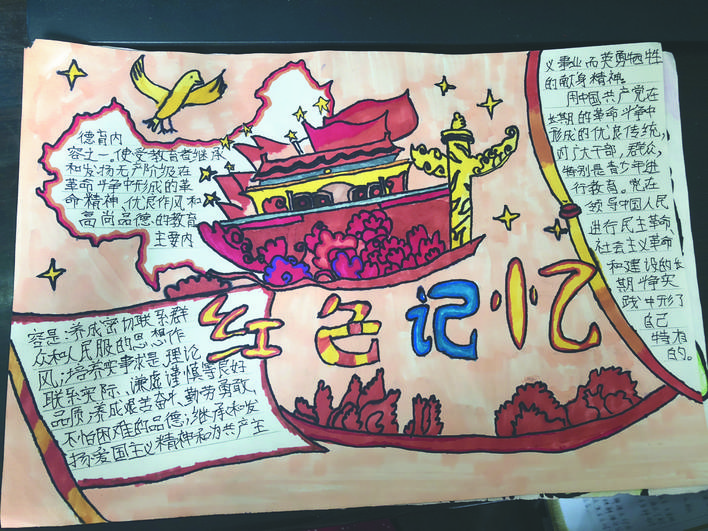 德育内
容之一。使受教育者继承
和发扬无产阶级在
革命斗争中形成的革
命精神、优良作风和
高尚品德的教育
主要内
红色记忆
容是:养成密切联系群
众和人民服的思想作
风;培养实事求是、理论
联系实际、谦虚谨慎等良好
品质;养成艰苦奋斗、勤劳勇敢、
不怕困难的品德;继承和发
扬爱国主义精神和为共产主
义事业而英勇牺牲
的献身精神。
用中国共产党在
长期的革命斗争中
形成的优良传统,
对广大干部,群众,
特别是青少年进
行教育。党在
领导中国人民
进行民主革命、
社会主义革命
和建设的长
期斗争实
践中形了
自己
特有
的。